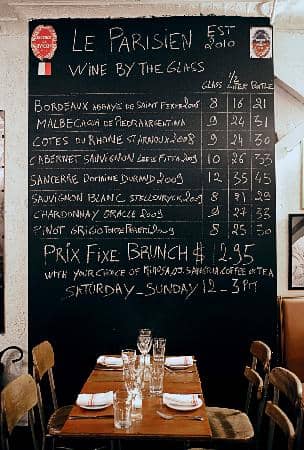 LE PARISIEN EST
2010
WINE BY THE GLASS
GLASS 1/2 LITER BOTTLE
BORDEAUX ABBAYE DE SAINT FERME 2008 8 16 21
MALBEC CASA DE PIEDRA ARGENTINA 9 24 31
COTES DU RHONE ST ARNOUX 2008 9 24 30
CABERNET SAUVIGNON 10 26 33
SANCERRE DOMAINE DURAND 2009 12 35 45
SAUVIGNON BLANC 2009 8 21 29
CHARDONNAY ORACLE 2009 9 27 33
PINOT GRIGIO 2009 8 25 30
PRIX FIXE BRUNCH $ 12.95
WITH YOUR CHOICE OF MIMOSA, OJ, SANGRIA COFFEE OR TEA
SATURDAY-SUNDAY 12-3PM